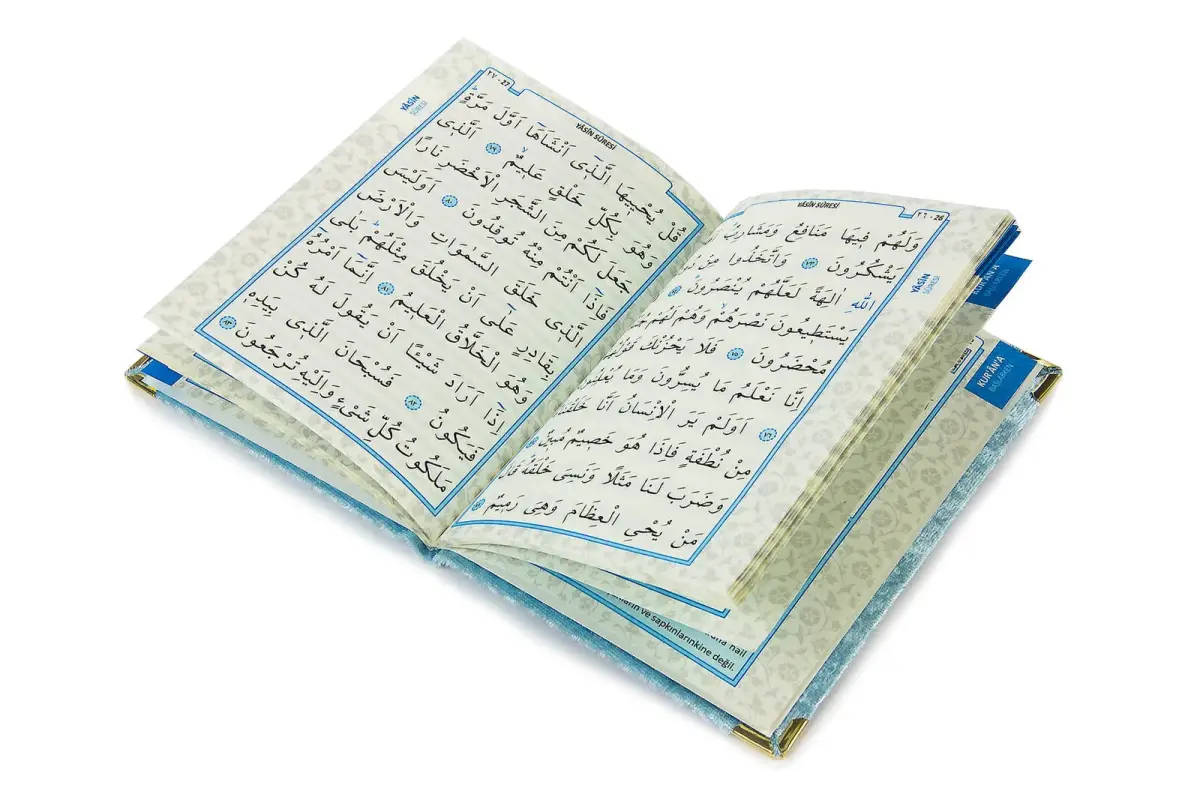 YÂSÎN SÛRESİ
٢٦ - 26
YÂSÎN
SÛRESİ
وَلَهُمْ فِيهَا مَنَافِعُ وَمَشَارِبُ
يَشْكُرُونَ ٧٣ وَاتَّخَذُوا مِنْ
اللّٰهِ اٰلِهَةً لَعَلَّهُمْ يُنْصَرُونَ ٧٤
يَسْتَطِيعُونَ نَصْرَهُمْ وَهُمْ لَهُمْ
مُحْضَرُونَ ٧٥ فَلَا يَحْزُنْكَ
اِنَّا نَعْلَمُ مَا يُسِرُّونَ وَمَا
٧٦ اَوَلَمْ يَرَ الْاِنْسَانُ اَنَّا
مِنْ نُطْفَةٍ فَاِذَا هُوَ خَصِيمٌ مُبِينٌ ٧٧
وَضَرَبَ لَنَا مَثَلًا وَنَسِىَ خَلْقَهُ
مَنْ يُحْيِي الْعِظَامَ وَهِىَ رَمِيمٌ ٧٨
٢٧ - 27
YÂSÎN SÛRESİ
YÂSÎN
SÛRESİ
قُلْ يُحْيِيهَا الَّذِى اَنْشَاَهَا اَوَّلَ مَرَّةٍ
وَهُوَ بِكُلِّ خَلْقٍ عَلِيمٌ ٧٩ الَّذِى
جَعَلَ لَكُمْ مِنَ الشَّجَرِ الْاَخْضَرِ نَارًا
فَاِذَا اَنْتُمْ مِنْهُ تُوقِدُونَ ٨٠ اَوَلَيْسَ
الَّذِى خَلَقَ السَّمٰوَاتِ وَالْاَرْضَ
بِقَادِرٍ عَلٰى اَنْ يَخْلُقَ مِثْلَهُمْ بَلٰى
وَهُوَ الْخَلَّاقُ الْعَلِيمُ ٨١ اِنَّمَا اَمْرُهُ
اِذَا اَرَادَ شَيْئًا اَنْ يَقُولَ لَهُ كُنْ
فَيَكُونُ ٨٢ فَسُبْحَانَ الَّذِى بِيَدِهِ
مَلَكُوتُ كُلِّ شَىْءٍ وَاِلَيْهِ تُرْجَعُونَ ٨٣
KUR'ÂN'A
KUR'ÂN'A
BAŞLARKEN
nail
ve sapkınlarınkine değil.